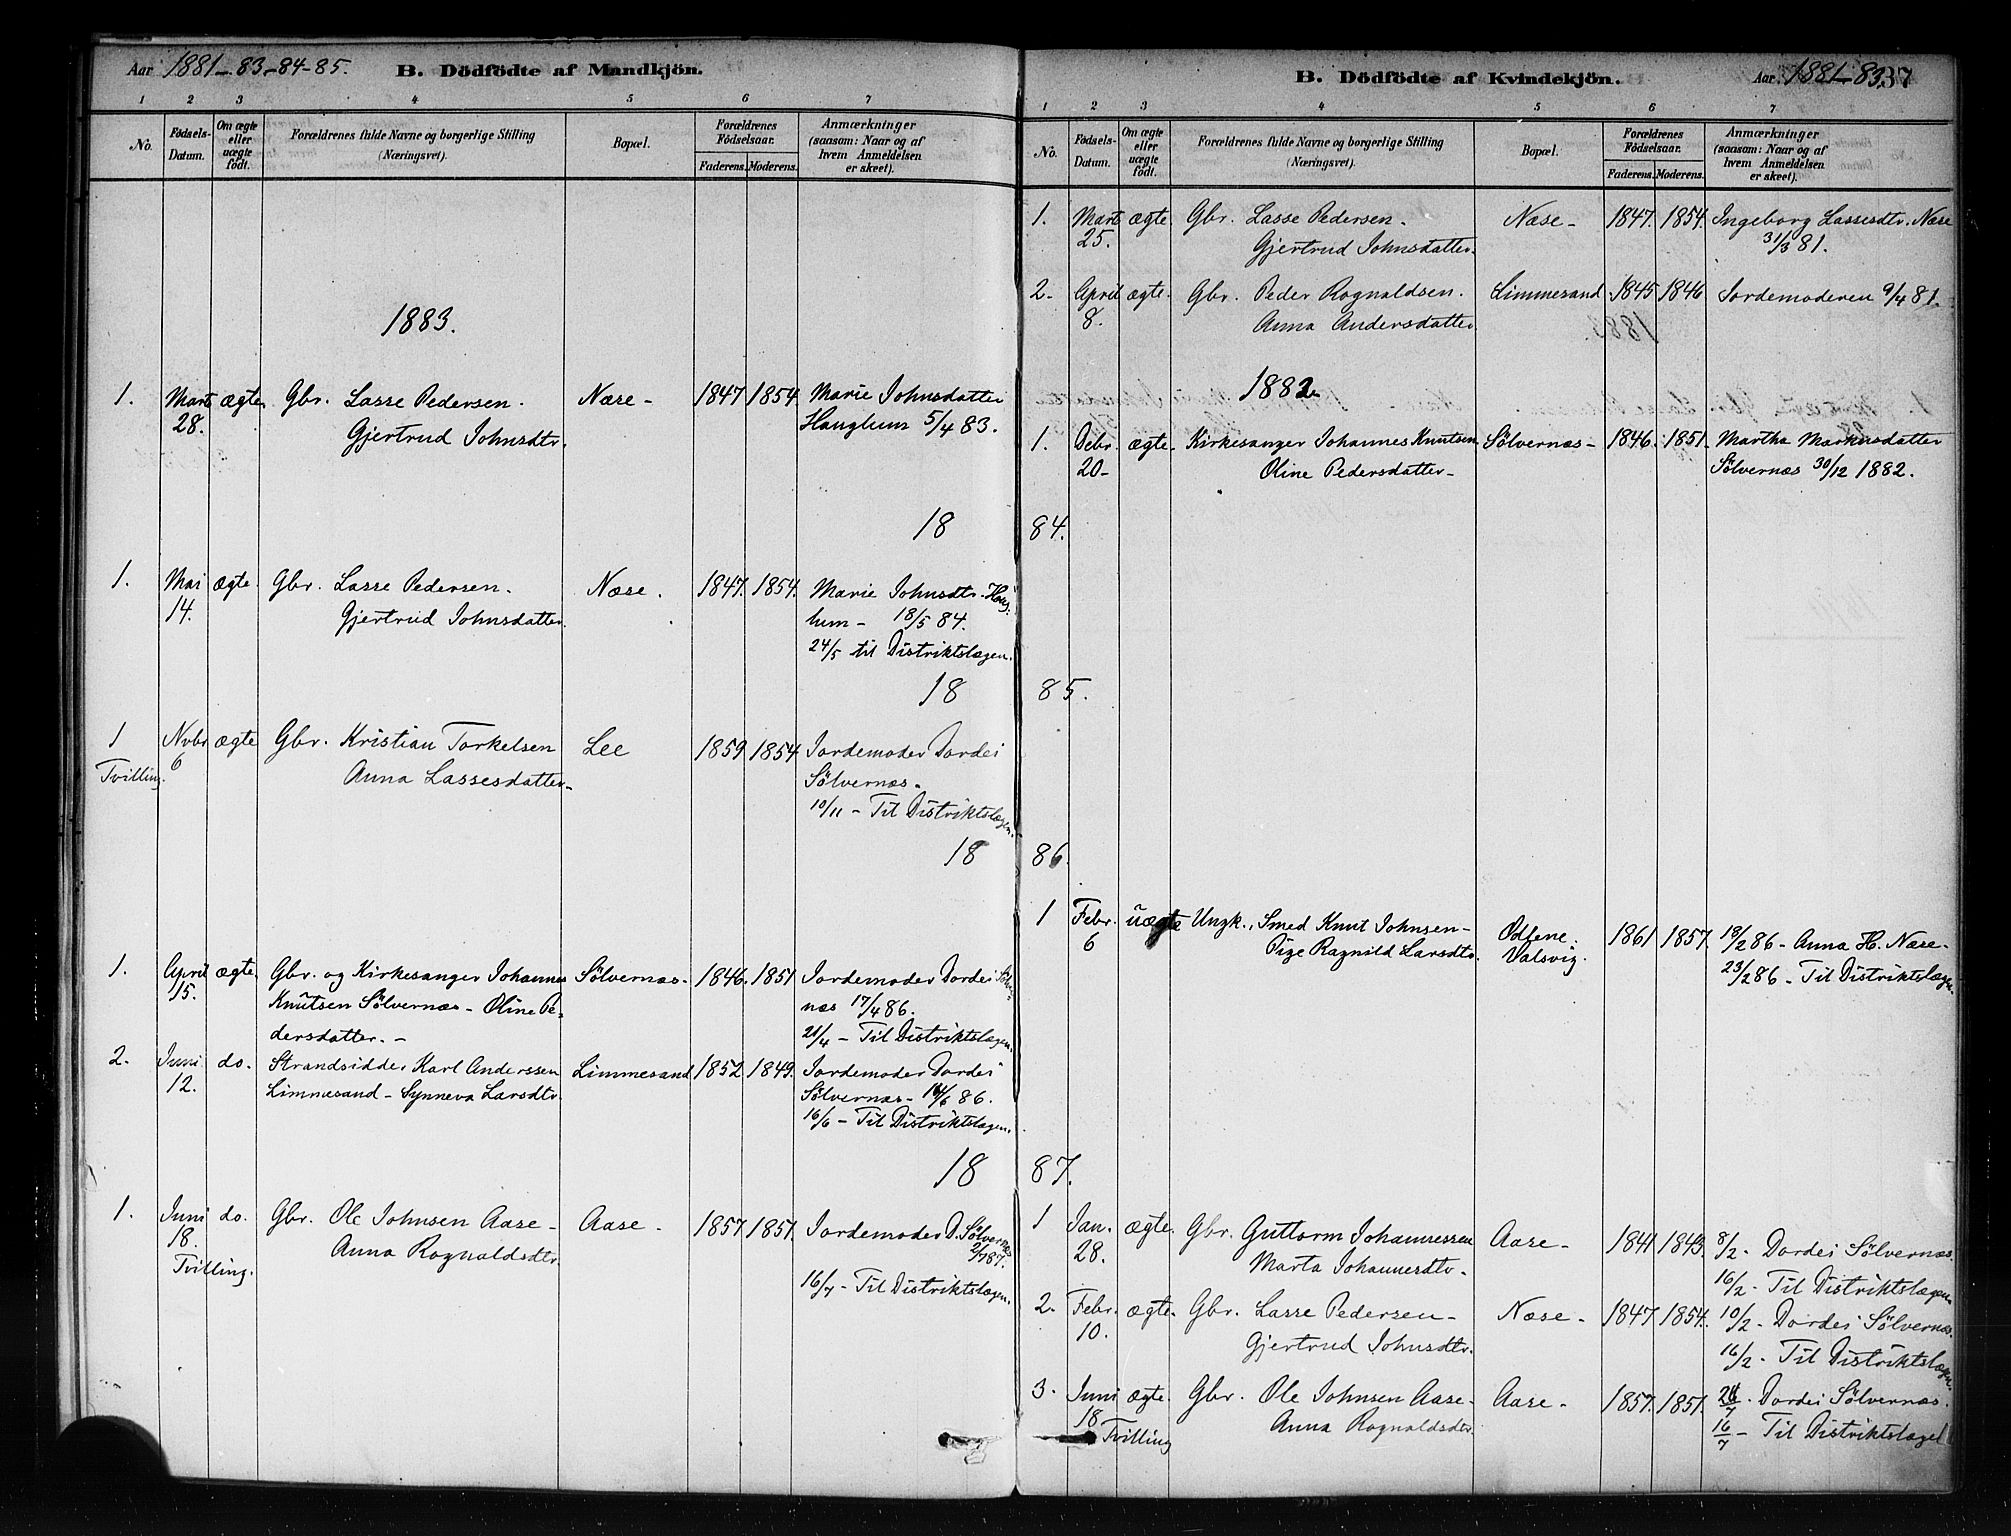 Aar 1881-83-84-85. B. Dödfödte af Mandkjön.
1 2 3 4 5 6 7
No. Födsels-Datum. Om ægte eller uægte födt. Forældrenes fulde Navne og borgerlige Stilling (Næringsvei). Bopæl. Forældrenes Födselsaar. Faderens. Moderens. Anmærkninger (saasom: Naar og af hvem Anmeldelsen er skeet).
1883.
1. Marts ægte Gbr. Lasse Pedersen. Næse - 1847 1854 Marie Johnsdatter
28. Gjertrud Johnsdtr. Haughum 5/4 83.
18
1. Mai ægte. Gbr. Lasse Pedersen. Næse. 1847. 1854. Marie Johnsdtr. Haug-
14. Gjertrud Johnsdatter. hum - 18/5 84.
24/5 til Distriktslægen.
18
1 Nvbr ægte Gbr. Kristian Torkelsen Lee 1859 1854 Jordemoder Dordei
Tvilling. 6 Anna Lassesdatter - Sölvernæs -
10/11 - Til Distriktslægen.
18
1. April ægte. Gbr. og Kirkesanger Johannes Sölvernæs - 1846. 1851 Jordemoder Dordei Sölver-
15. Knutsen Sölvernæs - Oline Pe- næs 17/4 86.
dersdatter. - 21/4 - Til Distriktslægen.
2. Juni do. Strandsidder Karl Anderssen Limmesand 1852 1849. Jordemoder Dordei
12. Limmesand - Synneva Larsdtr. Sölvernæs - 14/6 86.
16/6 - Til Distriktslægen.
18
1. Juni do. Gbr. Ole Johnsen Aase - Aase - 1857 1851. Jordemoder D. Sölvernæs
18. Anna Rognaldsdtr. 2/7 87.
Tvilling. 16/7 - Til Distriktslægen.
B. Dödfödte af Kvindekjön. Aar 1881-83. 37
1 2 3 4 5 6 7
No. Födsels-Datum. Om ægte eller uægte födt. Forældrenes fulde Navne og borgerlige Stilling (Næringsvei). Bopæl. Forældrenes Födselsaar. Faderens. Moderens. Anmærkninger (saasom: Naar og af hvem Anmeldelsen er skeet).
1. Marts ægte. Gbr. Lasse Pedersen - Næse - 1847. 1854. Ingeborg Lassesdtr. Næse
25. Gjertrud Johnsdatter. 31/3 81.
2. April ægte. Gbr. Peder Rognaldsen. Limmesand 1845 1846 Jordemoderen 9/4 81.
8. Anna Andersdatter
1882
1. Debr. ægte. Kirkesanger Johannes Knutsen Sölvernæs - 1846. 1851. Martha Markusdatter
20 - Oline Pedersdatter - Sölvernæs 30/12 1882.
84.
85.
86.
1 Febr. uægte Ungk., Smed Knut Johnsen - 1861 1857. 18/2 86 - Anna H. Næse -
6 Pige Ragnild Larsdtr. Valsvig. 23/2 86 - Til Distriktslægen.
87.
1 Jan. ægte. Gbr. Guttorm Johannessen Aase - 1841 1843. 8/2 - Dordei Sölvernæs.
28. Marta Johannesdtr. 16/2 - Til Distriktslægen.
2. Febr. ægte. Gbr. Lasse Pedersen - Næse - 1847 1854. 10/2 - Dordei Sölvernæs.
10. Gjertrud Johnsdtr. 16/2 - Til Distriktslægen.
3. Juni ægte. Gbr. Ole Johnsen Aase - Aase - 1857. 1851. Dordei Sölvernæs.
18 Anna Rognaldsdtr. 16/7 - Til Distriktslægen
Tvilling